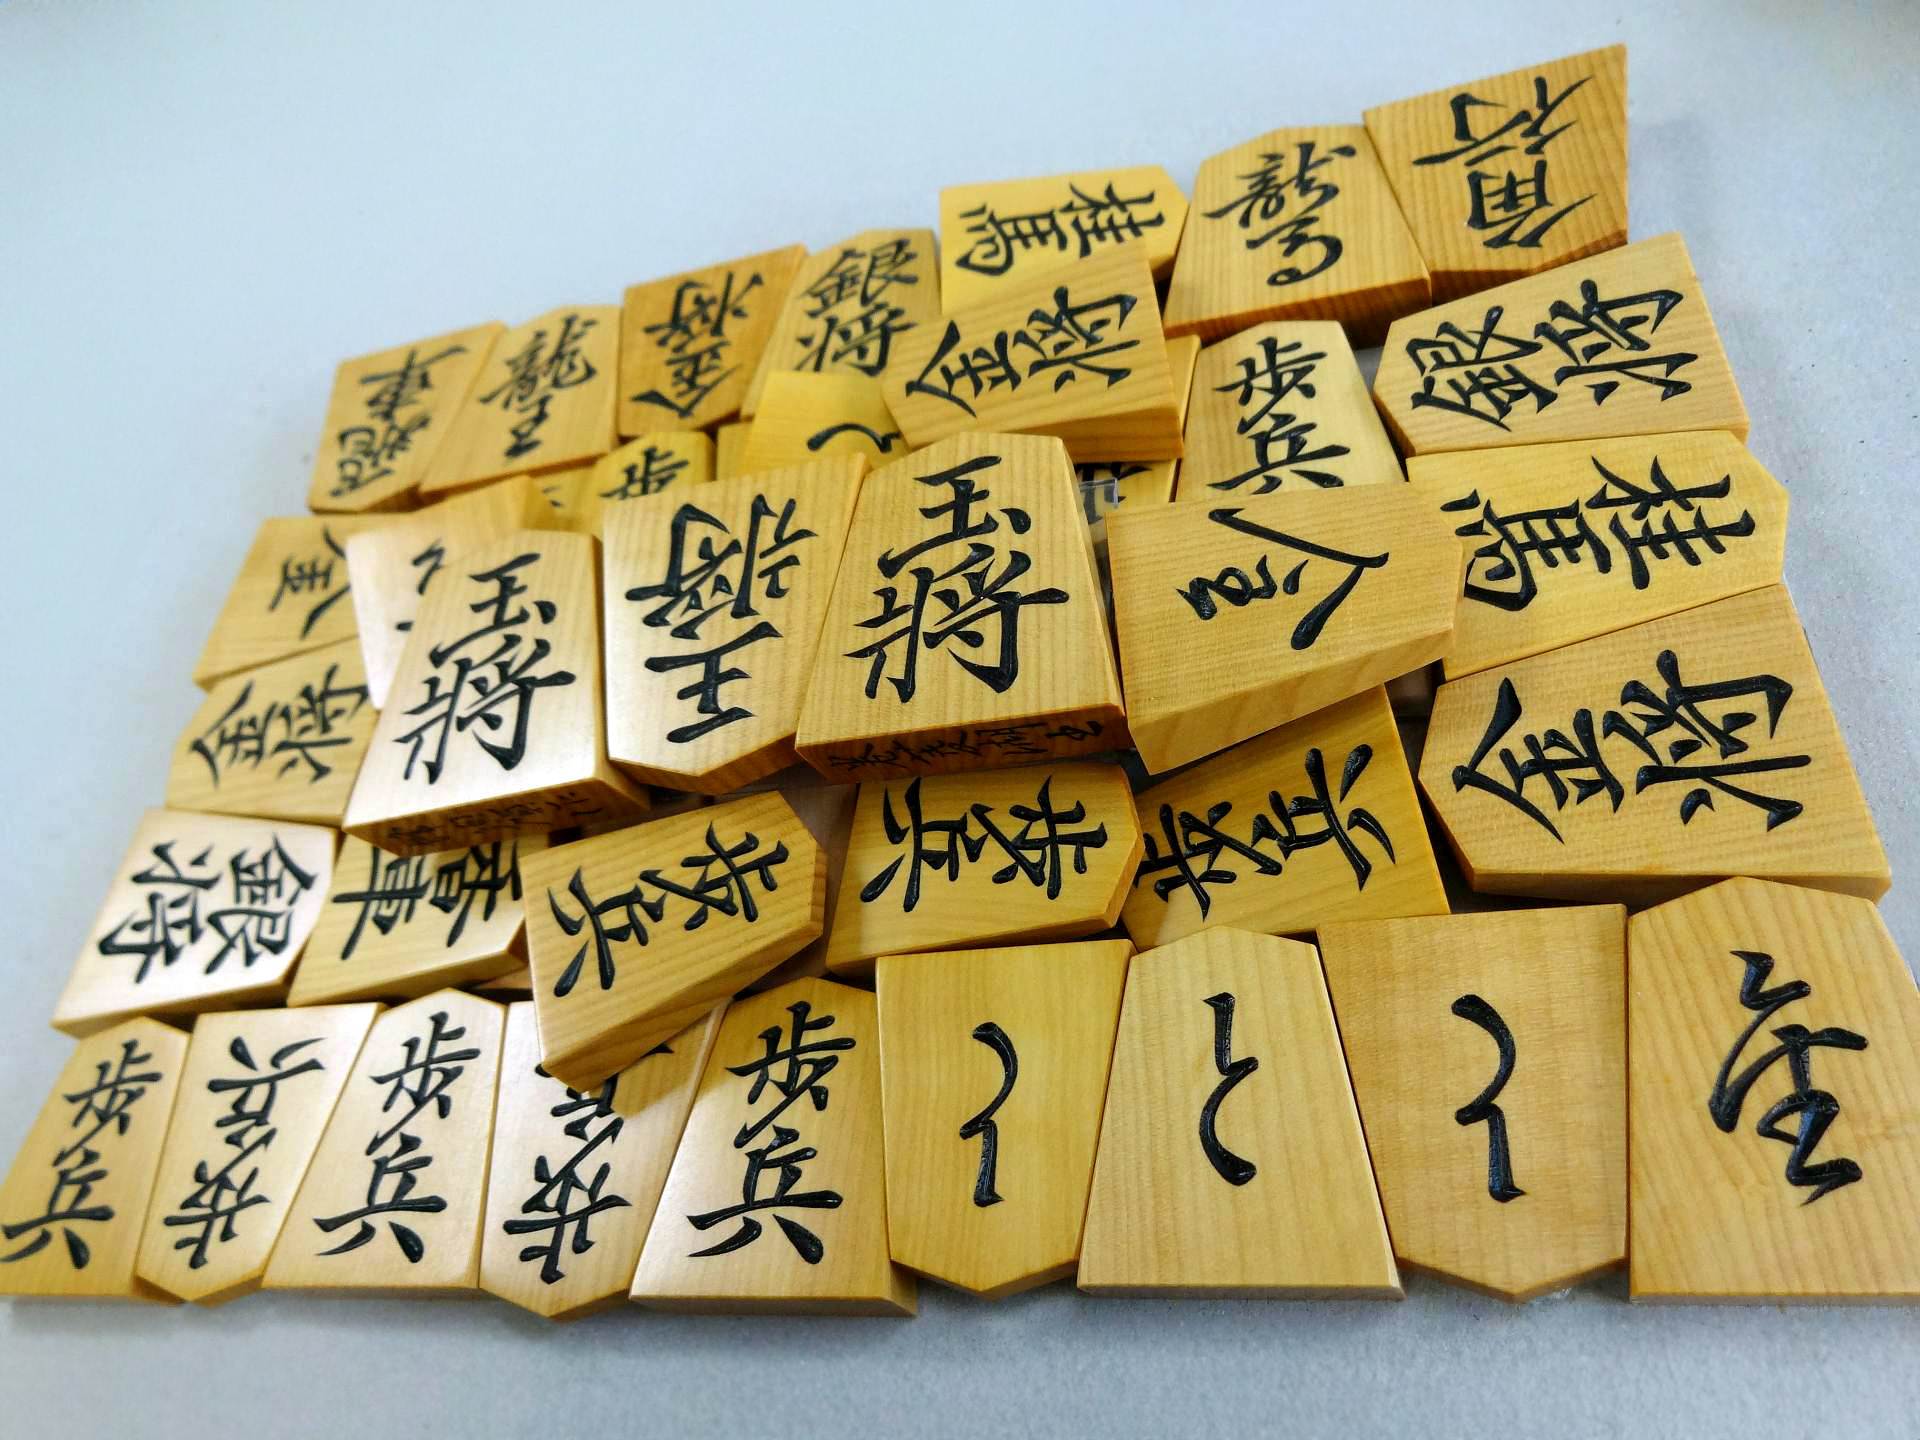 飛車
龍王
金将
銀将
桂馬
龍馬
角行
金将
歩兵
銀将
歩
と
桂馬
玉将
王将
玉将
金将
金将
銀将
香車
歩兵
歩兵
歩兵
歩兵
歩兵
歩兵
歩兵
歩兵
と
と
と
全